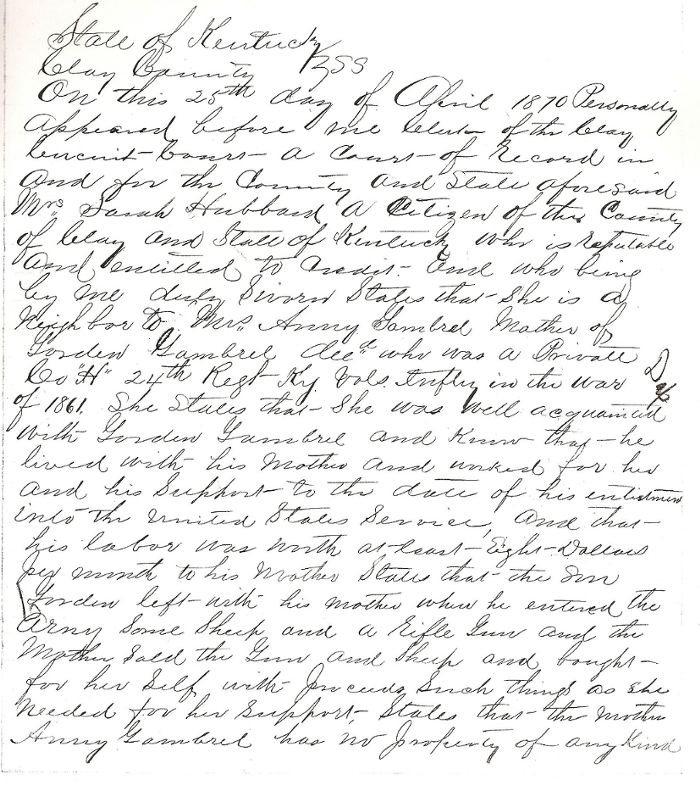 State of Kentucky
Clay County } SS
On this 25th day of April 1870 Personally
Appeared before me Clerk of the Clay
Circuit Court a Court of Record in
and for the County and State aforesaid
Mrs. Sarah Hubbard a Citizen of the County
of Clay and State of Kentucky who is reputable
and entitled to credit and who being
by me duly Sworn States that She is a
Neighbor to Mrs. Anny Gambrel Mother of
Gorden Gambrel decd who was a Private
Co "H" 24th Regt Ky Vols. Inftry in the war
of 1861. She States that She was well acquainted
with Gorden Gambrel and Know that he
lived with his Mother and worked for her
and his Support to the date of his enlistment
into the United States Service, And that
his labor was worth at least Eight Dollars
per month to his Mother States that the Son
Gorden left with his mother when he entered the
Army Some Sheep and a Rifle Gun and the
Mother Sold the Gun and Sheep and bought
for her Self with Proceeds Such things as She
Needed for her Support, States that the Mother
Anny Gambrel has no Property of any Kind